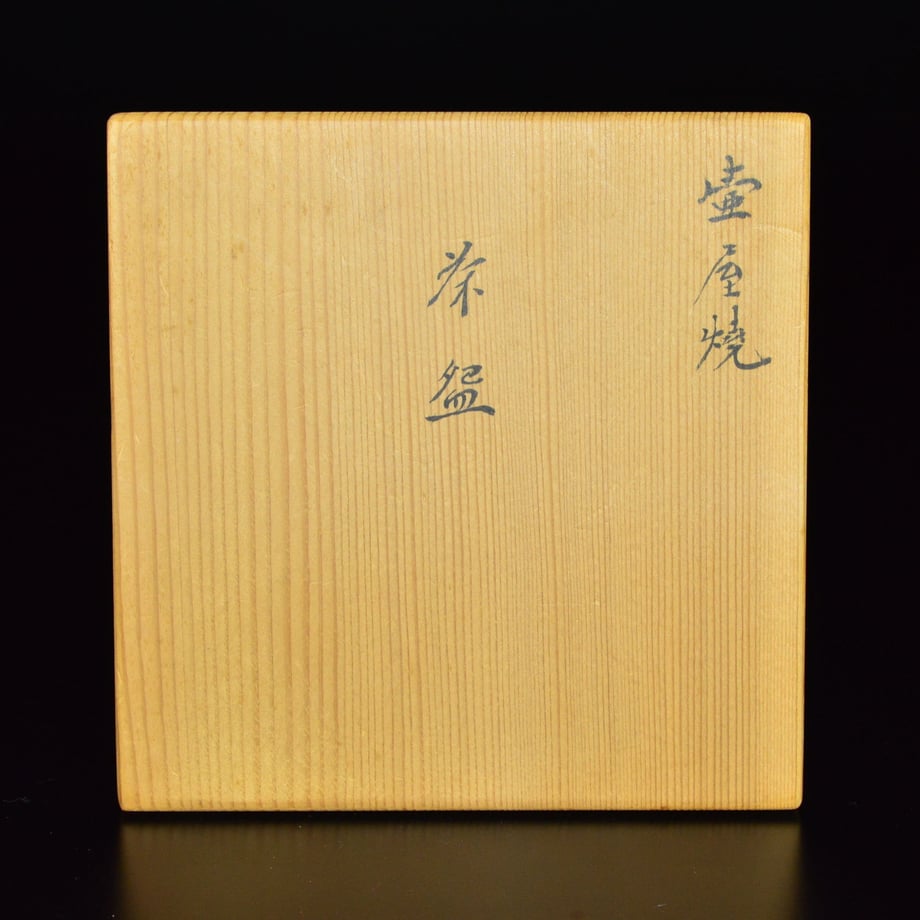 壷屋焼
茶盌